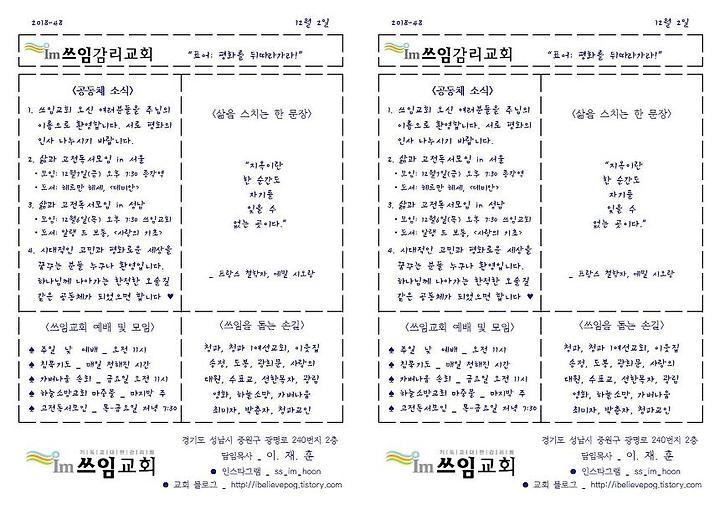 2018-48
12월 2일
Im쓰임감리교회
"표어: 평화를 뒤따라가라!"
<공동체 소식>
1. 쓰임교회 오신 여러분들을 주님의
이름으로 환영합니다. 서로 평화의
인사 나누시기 바랍니다.
2. 삶과 고전독서모임 in 서울
• 모임: 12월7일(금) 오후 7:30 종강영
• 도서: 헤르만 헤세, <데미안>
3. 삶과 고전독서모임 in 성남
• 모임: 12월6일(목) 오후 7:30 쓰임교회
• 도서: 알랭 드 보통, <사랑의 기초>
4. 시대적인 고민과 평화로운 세상을
꿈꾸는 분들 누구나 환영입니다.
하나님께 나아가는 한적한 오솔길
같은 공동체가 되었으면 합니다 ♥
<삶을 스치는 한 문장>
"지옥이란
한 순간도
자기를
잊을 수
없는 곳이다."
_ 프랑스 철학자, 에밀 시오랑
<쓰임교회 예배 및 모임>
♠ 주일 낮 예배 _ 오전 11시
♠ 침묵기도 _ 매일 정해진 시간
♠ 가버나움 속회 _ 금요일 오전 11시
♠ 하늘소망교회 마중물 _ 마지막 주
♠ 고전독서모임 _ 목-금요일 저녁 7:30
<쓰임을 돕는 손길>
청파, 청파 1여선교회, 이웃집
숭정, 도봉, 광희문, 사랑의
대원, 수표교, 선한목자, 광림
영화, 하늘소망, 가버나움
최미자, 박춘자, 청파교인
기|독|교|대|한|감|리|회
Im쓰임교회
경기도 성남시 중원구 광명로 240번지 2층
담임목사 _ 이 재 훈
● 인스타그램 _ ss_im_hoon
● 교회 블로그 _ http://ibelievepog.tistory.com
2018-48
12월 2일
Im쓰임감리교회
"표어: 평화를 뒤따라가라!"
<공동체 소식>
1. 쓰임교회 오신 여러분들을 주님의
이름으로 환영합니다. 서로 평화의
인사 나누시기 바랍니다.
2. 삶과 고전독서모임 in 서울
• 모임: 12월7일(금) 오후 7:30 종강영
• 도서: 헤르만 헤세, <데미안>
3. 삶과 고전독서모임 in 성남
• 모임: 12월6일(목) 오후 7:30 쓰임교회
• 도서: 알랭 드 보통, <사랑의 기초>
4. 시대적인 고민과 평화로운 세상을
꿈꾸는 분들 누구나 환영입니다.
하나님께 나아가는 한적한 오솔길
같은 공동체가 되었으면 합니다 ♥
<삶을 스치는 한 문장>
"지옥이란
한 순간도
자기를
잊을 수
없는 곳이다."
_ 프랑스 철학자, 에밀 시오랑
<쓰임교회 예배 및 모임>
♠ 주일 낮 예배 _ 오전 11시
♠ 침묵기도 _ 매일 정해진 시간
♠ 가버나움 속회 _ 금요일 오전 11시
♠ 하늘소망교회 마중물 _ 마지막 주
♠ 고전독서모임 _ 목-금요일 저녁 7:30
<쓰임을 돕는 손길>
청파, 청파 1여선교회, 이웃집
숭정, 도봉, 광희문, 사랑의
대원, 수표교, 선한목자, 광림
영화, 하늘소망, 가버나움
최미자, 박춘자, 청파교인
기|독|교|대|한|감|리|회
Im쓰임교회
경기도 성남시 중원구 광명로 240번지 2층
담임목사 _ 이 재 훈
● 인스타그램 _ ss_im_hoon
● 교회 블로그 _ http://ibelievepog.tistory.com